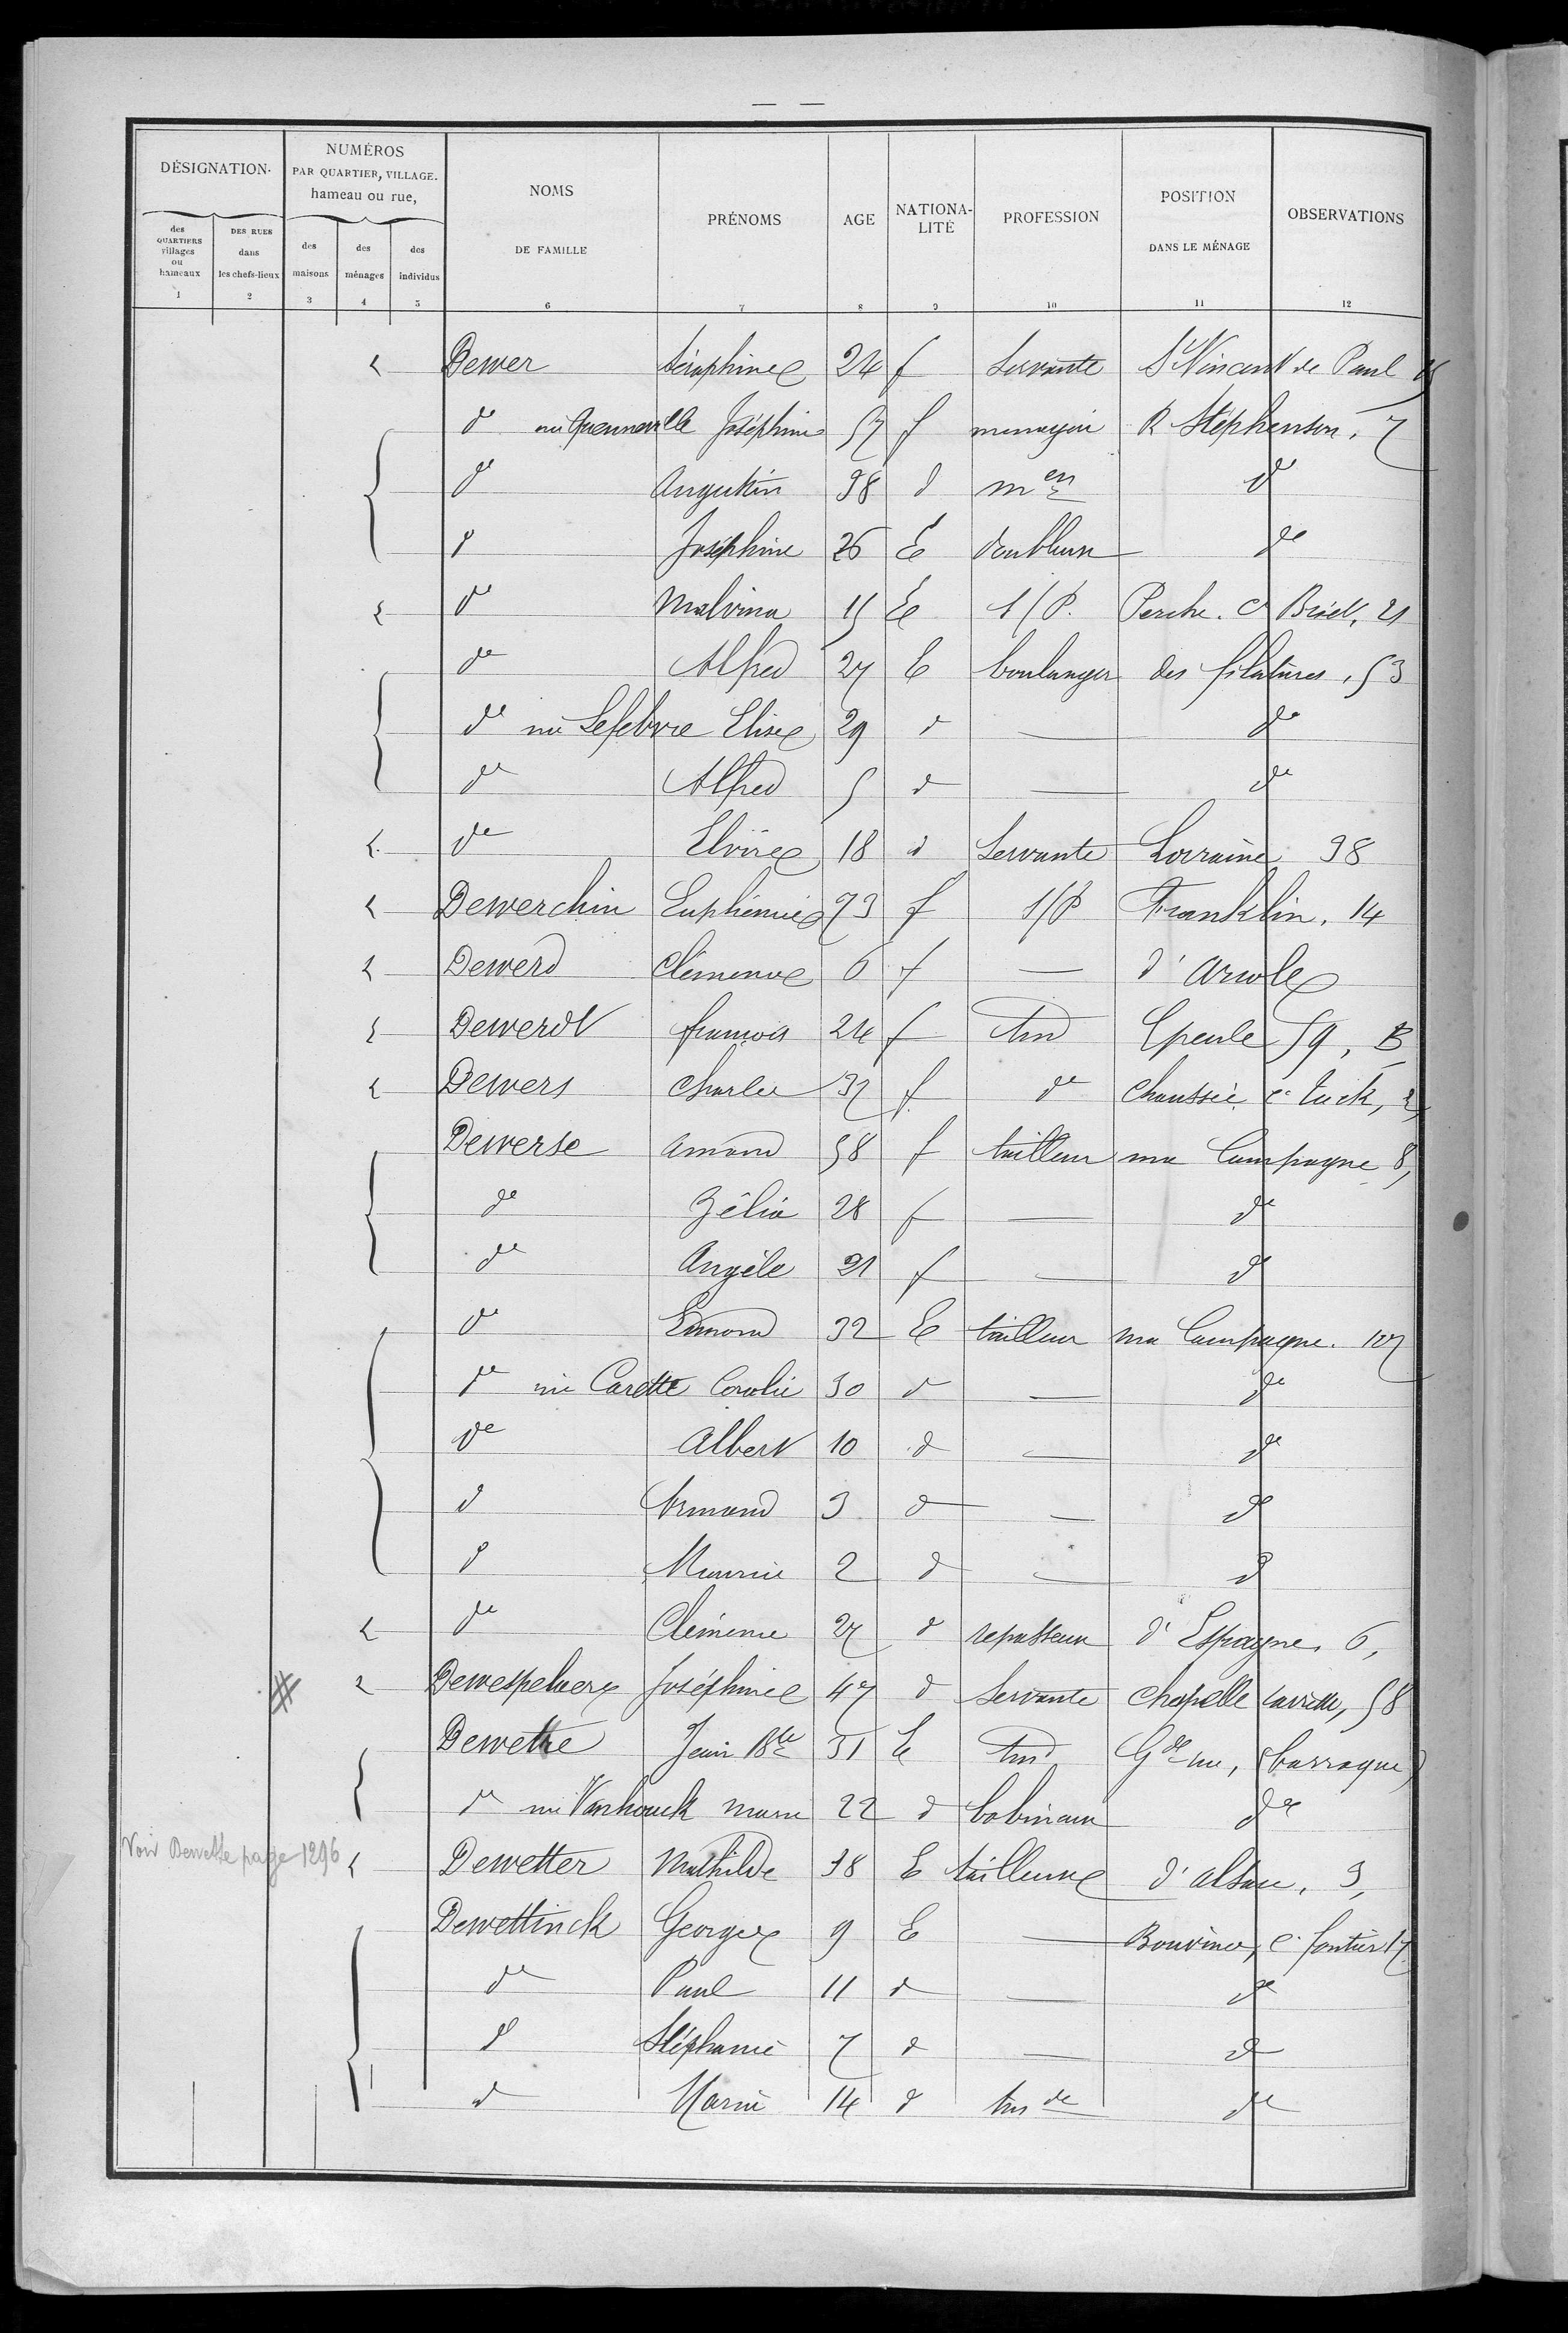 DÉSIGNATION.
des QUARTIERS villages ou hameaux
1
DES RUES dans les chefs-lieux
2
NUMÉROS
PAR QUARTIER, VILLAGE.
hameau ou rue,
des maisons
3
des ménages
4
des individus
5
NOMS
DE FAMILLE
6
PRÉNOMS
7
AGE
8
NATIONA-
LITÉ
9
PROFESSION
10
POSITION
DANS LE MÉNAGE
11
OBSERVATIONS
12
Dewer Séraphine 24 f Servante St Vincent de Paul
do née Quenneville Joséphine 57 f menagère R Stéphenson, 7
do Augustin 38 d men do
do Joséphine 26 E doubleuse do
do Malvina 15 E S/P. Perche. C Briet, 21
do Alfred 27 E boulanger des filatures, 53
do née Lefebvre Elise 29 d — do
do Alfred 5 d — do
do Elvire 18 d Servante Lorraine 38
Dewerchin Euphémie 73 f S/P Franklin, 14
Dewerd Clémence 6 f — d'Arcole
Dewerdt françois 24 f tisd Epeule 59, B
Dewers Charles 37 f do Chaussée c Tuck, 2,
Dewerse Amand 58 f tailleur ma Campagne 8,
do Zélia 28 f — do
do Angèle 21 f — do
do Edmond 32 E tailleur ma Campagne. 107
do née Carette Coralie 30 d — do
do Albert 10 d — do
do Armand 3 d — do
do Maurice 2 d — do
do Clémence 27 d repasseuse d'Espagne, 6,
Dewespelaere Joséphine 47 d Servante Chapelle Carette, 58
Dewette Jean Bte 31 E tisd Gde rue, (barraque)
do née Vanhouck marie 22 d bobineuse do
Voir Dewette page 1296
Dewetter Mathilde 38 E tailleuse d'alsace, 3,
Dewettinck Georges 9 E — Bouvines, c. fontier 17.
do Paul 11 d — do
do Stéphanie 7 d — do
do Marie 14 d tisde do